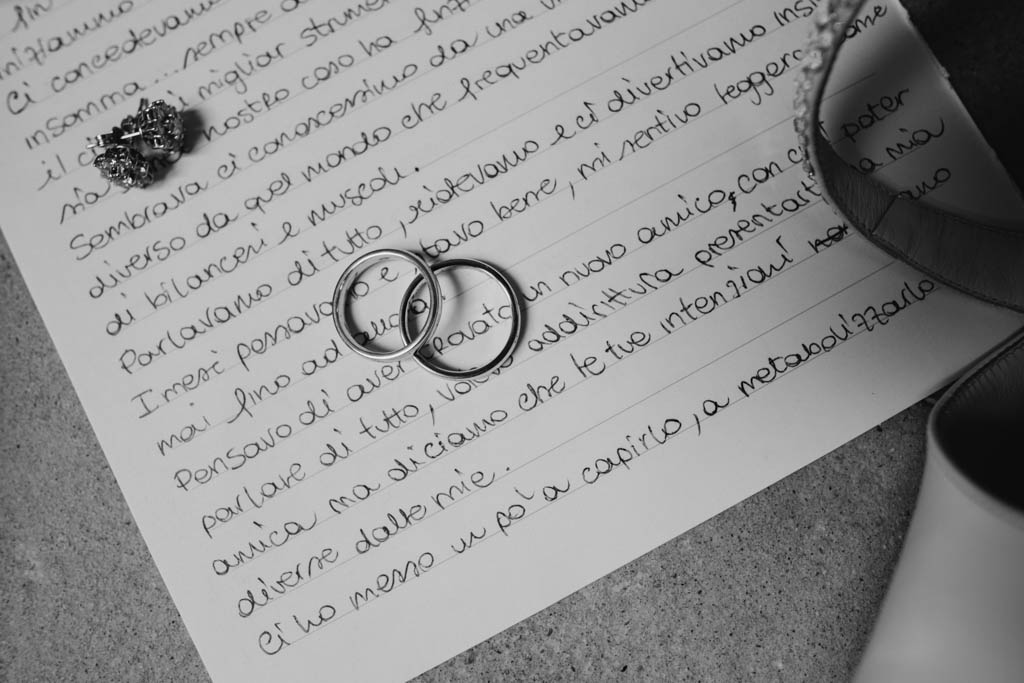 fin
iniziammo
Ci concedevamo
insomma... sempre
il migliar strument
sia nostro caso ha funz
Sembrava ci conoscessimo da una vi
diverso da quel mondo che frequentavam
di bilanceri e muscoli.
Parlavamo di tutto, ridevamo e ci divertivamo insi
I mesi passavano e stavo bene, mi sentivo leggero come
mai fino ad
Pensavo di aver trovato un nuovo amico, con cui poter
parlare di tutto, volevo addirittura presentarti la mia
amica ma diciamo che le tue intenzioni erano
diverse dalle mie.
Ci ho messo un po' a capirlo, a metabolizzarlo